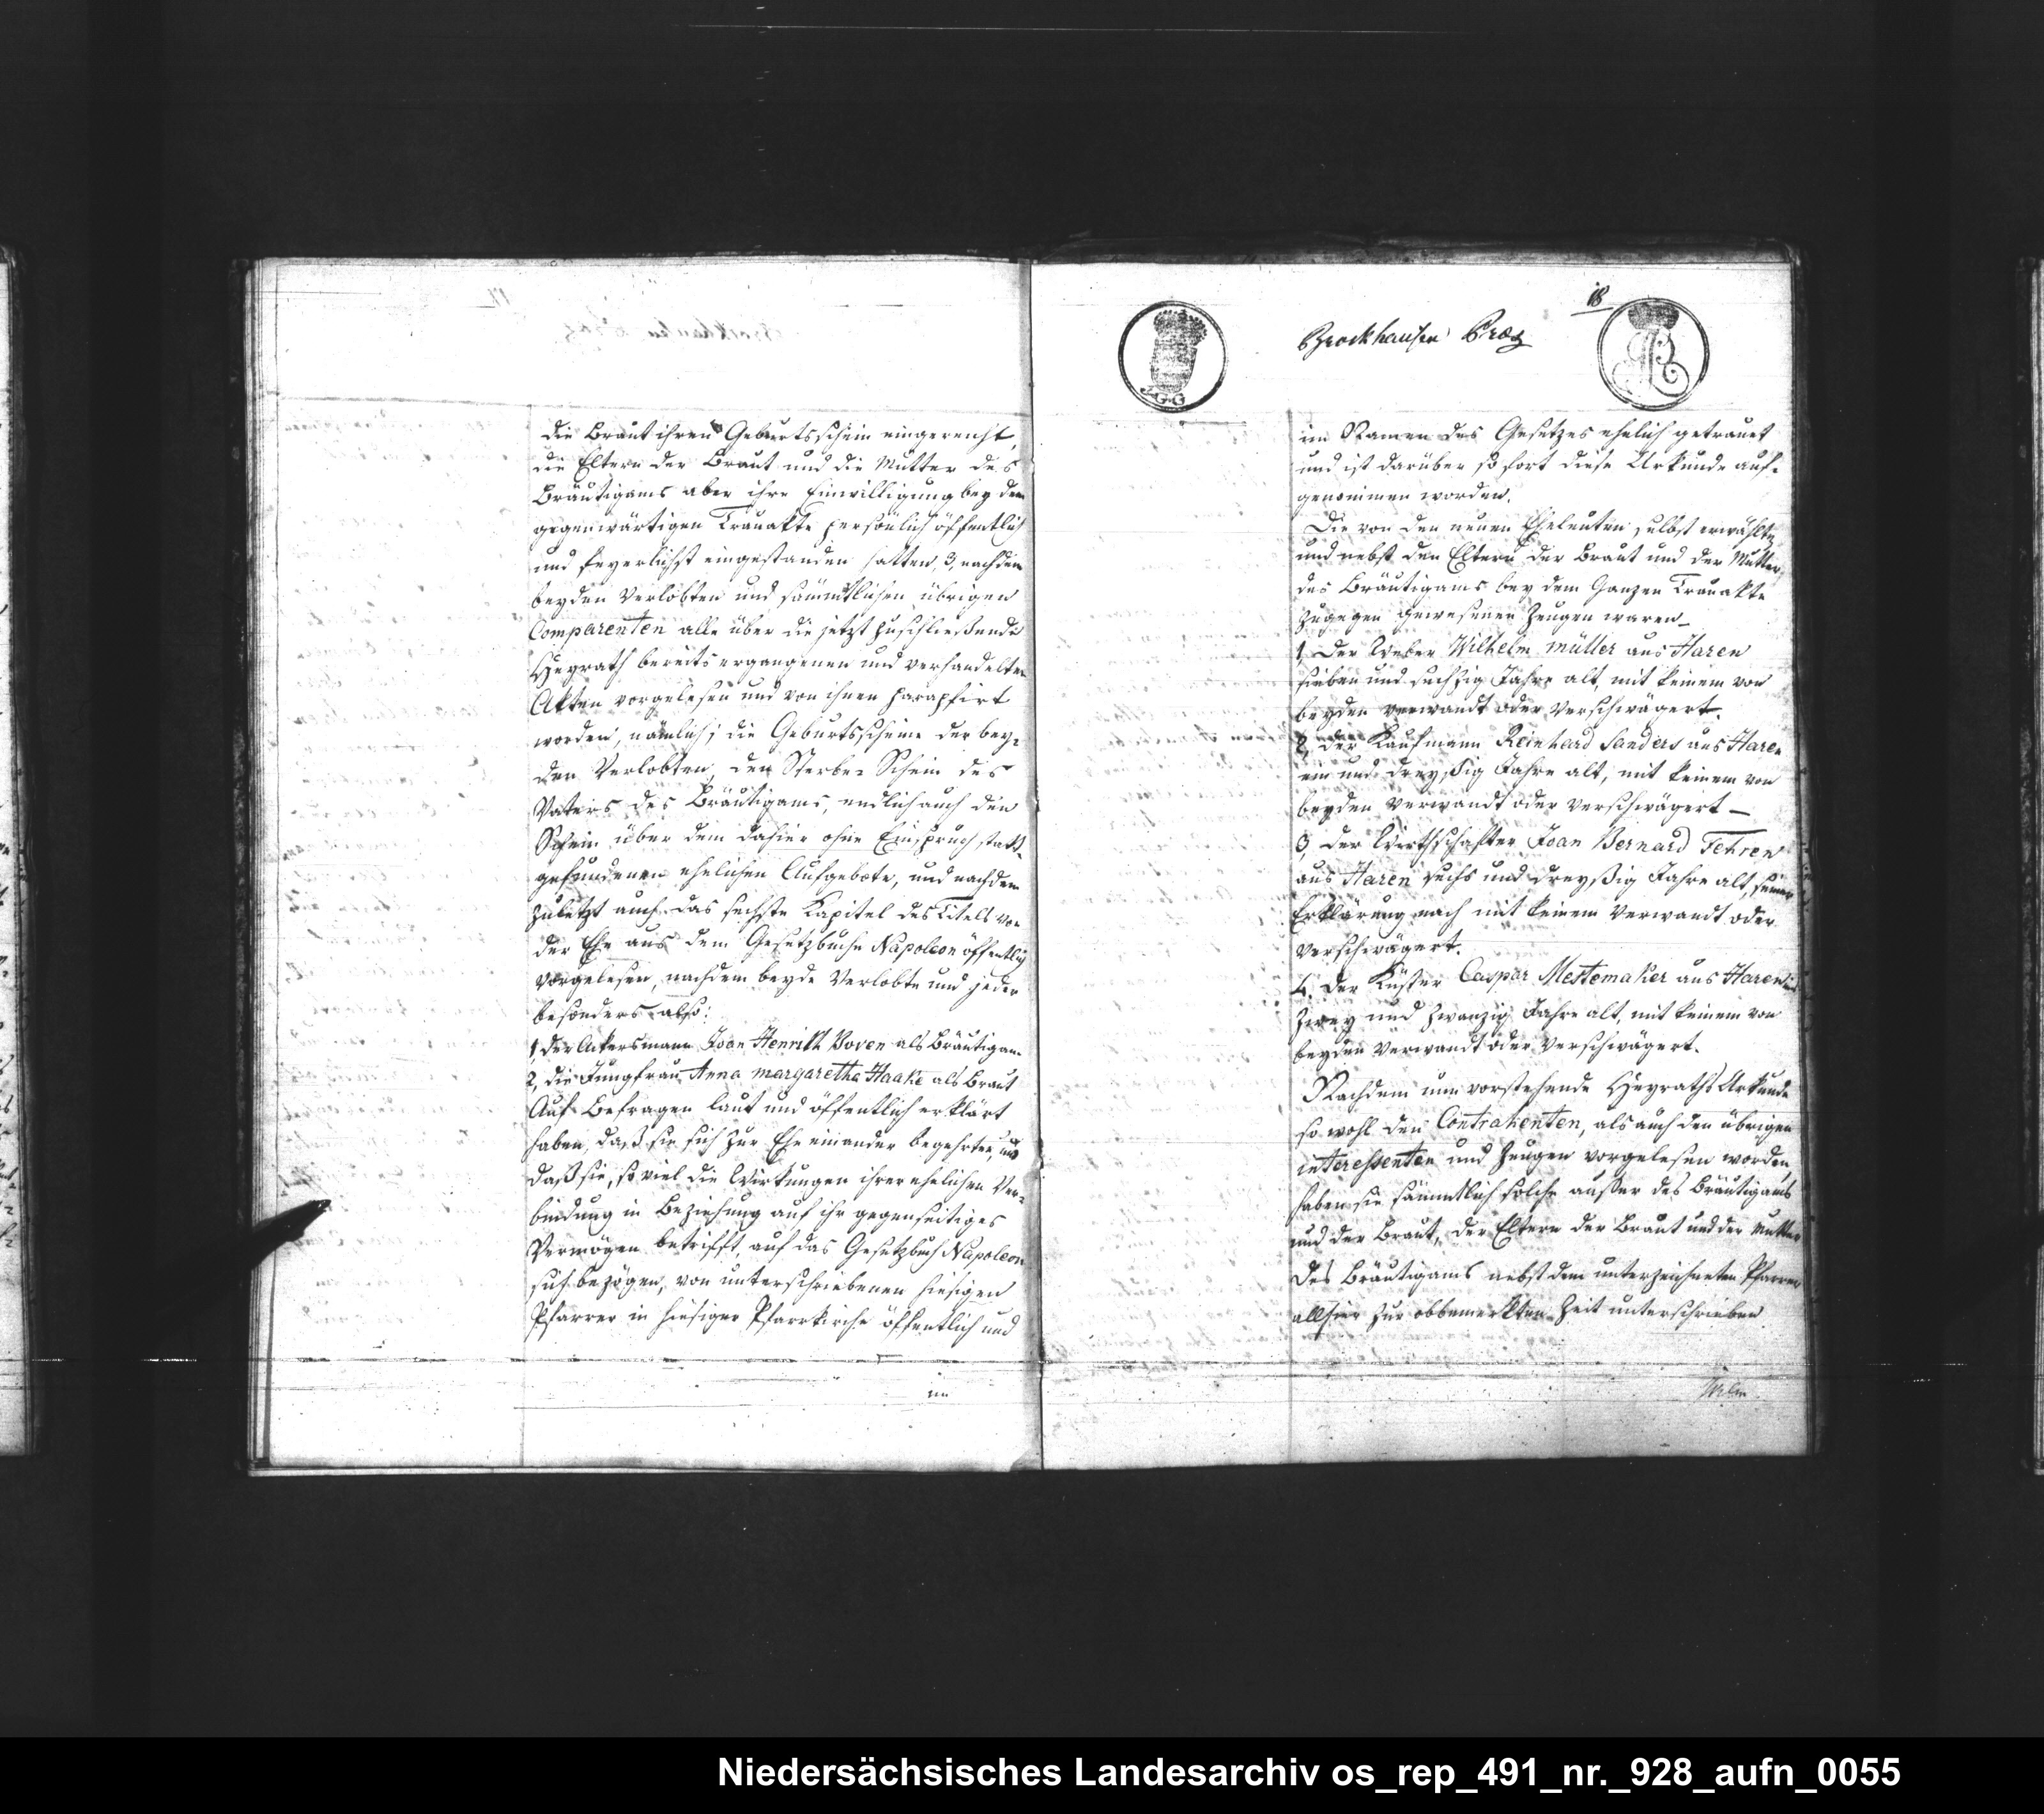 die Braut ihren Geburtsschein eingereicht,
die Eltern der Braut und die Mutter des
Bräutigams aber ihre Einwilligung bey dem
gegenwärtigen Trauakte persönlich öffentlich
und feyerlichst eingestanden hatten, 3, nachdem
beyden Verlobten und sämmtlichen übrigen
Comparenten alle über die jetzt zuschließende
Heyrath bereits ergangenen und verhandelten
Akten vorgelesen und von ihnen paraphirt
worden, nämlich; die Geburtsscheine der bey-
den Verlobten, den Sterbe-Schein des
Vaters des Bräutigams, endlich auch den
Schein über dem dahier ohne Einspruch statt-
gefundenen ehelichen Aufgebote, und nachdem
zuletzt auch das sechste Kapitel des Titels von
der Ehe aus dem Gesetzbuche Napoleon öffentlich
vorgelesen, nachdem beyde Verlobte und jeder
besonders also:
1, der Ackersmann Joan Henrich Boven als Bräutigam
2, die Jungfrau Anna margaretha Haake als Braut
Auf Befragen laut und öffentlich erklärt
haben, daß sie sich zur Ehe einander begehrten, und
daß sie, so viel die Wirkungen ihrer ehelichen Ver-
bindung in Beziehung auf ihr gegenseitiges
Vermögen betrifft, auf das Gesetzbuch Napoleon
sich bezögen, von unterschriebenen hiesigen
Pfarrer in hiesiger Pfarrkirche öffentlich und
im
18
Brockhausen
G.G
im Namen des Gesetzes ehelich getrauet
und ist darüber so fort diese Urkunde auf-
genommen worden.
Die von den neuen Eheleuten selbst erwählte
und nebst den Eltern der Braut und der Mutter
des Bräutigams bey dem Ganzen Trauakte
zugegen gewesenen Zeugen waren_
1, Der Weber Wilhelm müller aus Haren
sieben und sechzig Jahre alt, mit keinem von
beyden verwandt oder verschwägert.
2, der Kaufmann Reinhard Sanders aus Haren
ein und dreyßig Jahre alt, mit keinem von
beyden verwandt oder verschwägert —
3, der Wirthschafter Joan Bernard Fehren
aus Haren sechs und dreyßig Jahre alt, seiner
Erklärung nach mit keinem verwandt oder
verschwägert.
4. der Küster Caspar Mestemaker aus Haren
zwey und zwanzig Jahre alt, mit keinem von
beyden verwandt oder verschwägert.
Nachdem nun vorstehende Heyraths Urkunde
so wohl den Contrahenten, als auch den übrigen
interessenten und Zeugen vorgelesen worden,
haben sie sämmtlich solche außer des Bräutigams
und der Braut, der Eltern der Braut und der Mutter
des Bräutigams nebst dem unterzeichneten Pfarrer
allhier zur obbemerkten Zeit unterschrieben
Niedersächsisches Landesarchiv os_rep_491_nr._928_aufn_0055